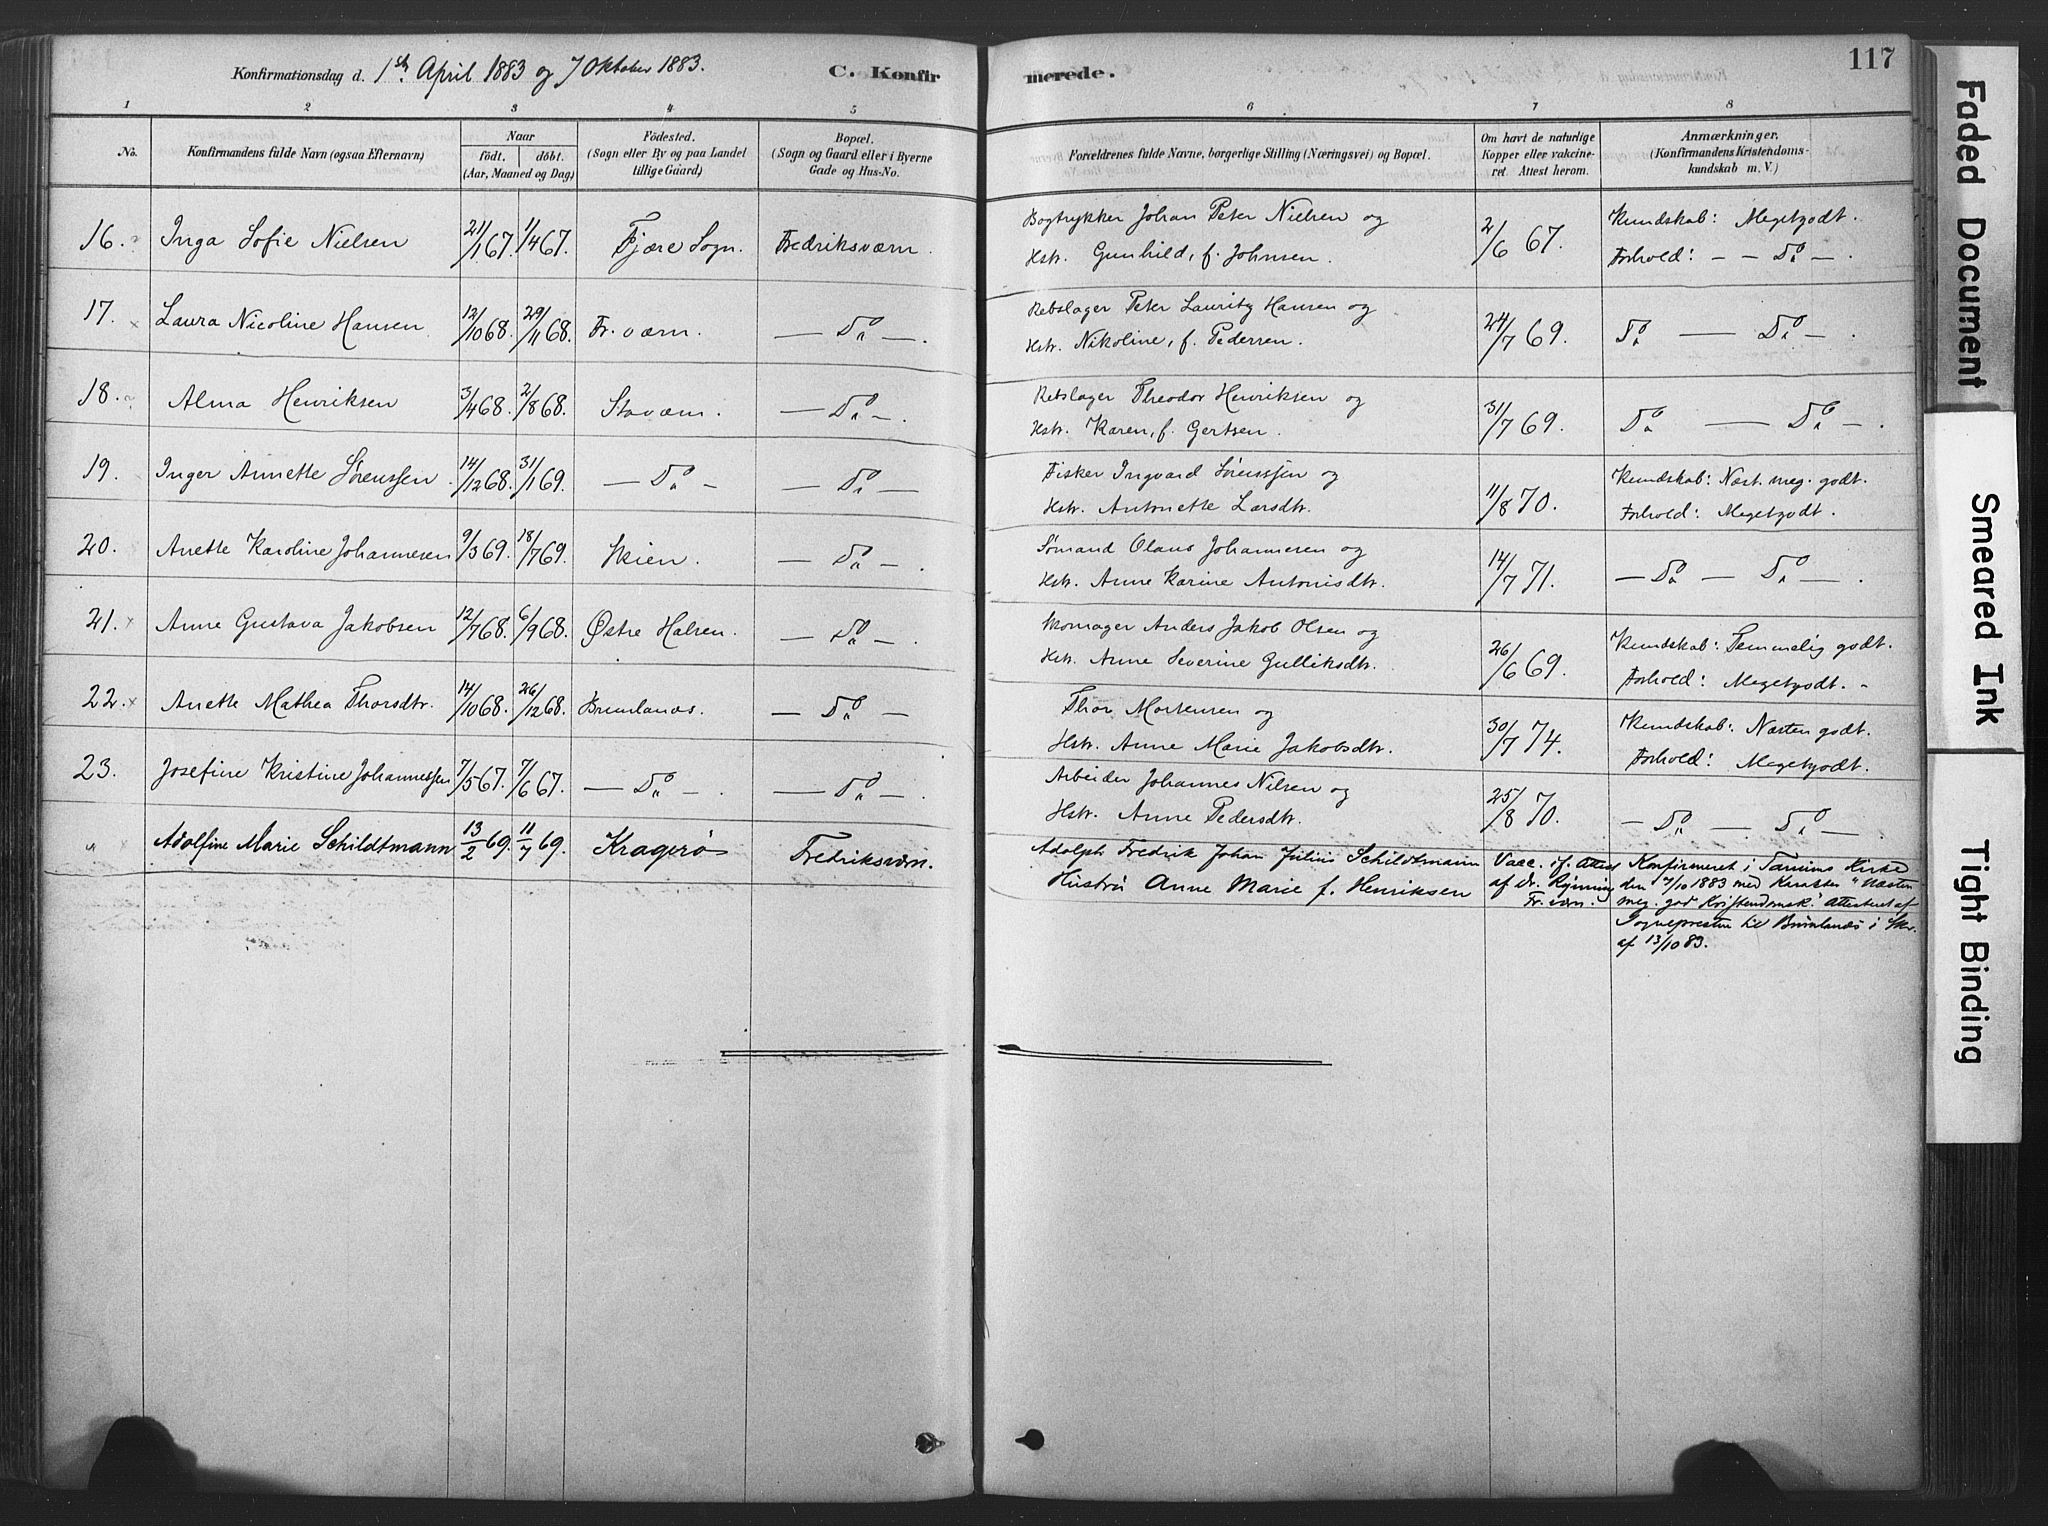 117
Konfirmationsdag d. 1ste April 1883 og 7 Oktober 1883. C. Konfirmerede.
1 2 3 4 5 6 7 8
No.
Konfirmandens fulde Navn (ogsaa Efternavn)
Naar
födt. döbt.
(Aar, Maaned og Dag)
Födested.
(Sogn eller By og paa Landet
tillige Gaard)
Bopæl.
(Sogn og Gaard eller i Byerne
Gade og Hus-No.
Forældrenes fulde Navne, borgerlige Stilling (Næringsvei) og Bopæl.
Om havt de naturlige
Kopper eller vakcine-
ret. Attest herom.
Anmærkninger.
(Konfirmandens Kristendoms-
kundskab m. V.)
16. Inga Sofie Nielsen 21/1 67. 1/4 67. Fjære Sogn. Fredriksværn. Bogtrykker Johan Peter Nielsen og
Hstr. Gunhild, f. Johnsen. 2/6 67. Kundskab: Megetgodt.
Forhold: — — Do —.
17. Laura Nicoline Hansen 12/10 68. 29/11 68. Fr.værn. — Do —. Rebslager Peter Lauritz Hansen og
Hstr. Nikoline, f. Pedersen. 24/7 69. Do — Do —.
18. Alma Henriksen 3/4 68. 2/8 68. Staværn. — Do —. Rebslager Theodor Henriksen og
Hstr. Karen, f. Gertsen. 31/7 69. Do — Do —.
19. Inger Annette Sørenssen 14/12 68. 31/1 69. — Do — — Do — Fisker Ingvard Sørenssen og
Hstr. Antonette Larsdtr. 11/8 70. Kundskab: Næst. meg. godt.
Forhold: Megetgodt.
20. Anette Karoline Johannesen 9/5 69. 18/7 69. Skien. — Do —. Sømand Olaus Johannesen og
Hstr. Anne Karine Antonisdtr. 14/7 71. — Do — Do —.
21. Anne Gustava Jakobsen 12/7 68. 6/9 68. Østre Halsen. — Do —. Skomager Anders Jakob Olsen og
Hstr. Anne Severine Gulliksdtr. 26/6 69. Kundskab: Temmelig godt.
Forhold: Megetgodt.
22. Anette Mathea Thorsdtr. 14/10 68. 26/12 68. Brunlanæs. — Do — Thor Mortensen og
Hstr. Anne Marie Jakobsdtr. 30/7 74. Kundskab: Næsten godt.
Forhold: Megetgodt.
23. Josefine Kristine Johannessen 7/5 67. 7/6 67. — Do —. — Do —. Arbeider Johannes Nilsen og
Hstr. Anne Pedersdtr. 25/8 70. — Do — Do —
" Adolfine Marie Schildtmann 13/2 69. 11/7 69. Kragerø Fredriksværn. Adolph Fredrik Johan Julius Schildtmann
Hustru Anne Marie f. Henriksen
Vacc. if. Attest
af Dr. Rynning
Fr.værn.
Konfirmeret i Tanums Kirke
den 7/10 1883 med Karakter "Næsten
meg. god Kristendomsk." Attesteret af
Sognepresten til Brunlanæs i Skr.
af 13/10 83.
Faded Document
Smeared Ink
Tight Binding